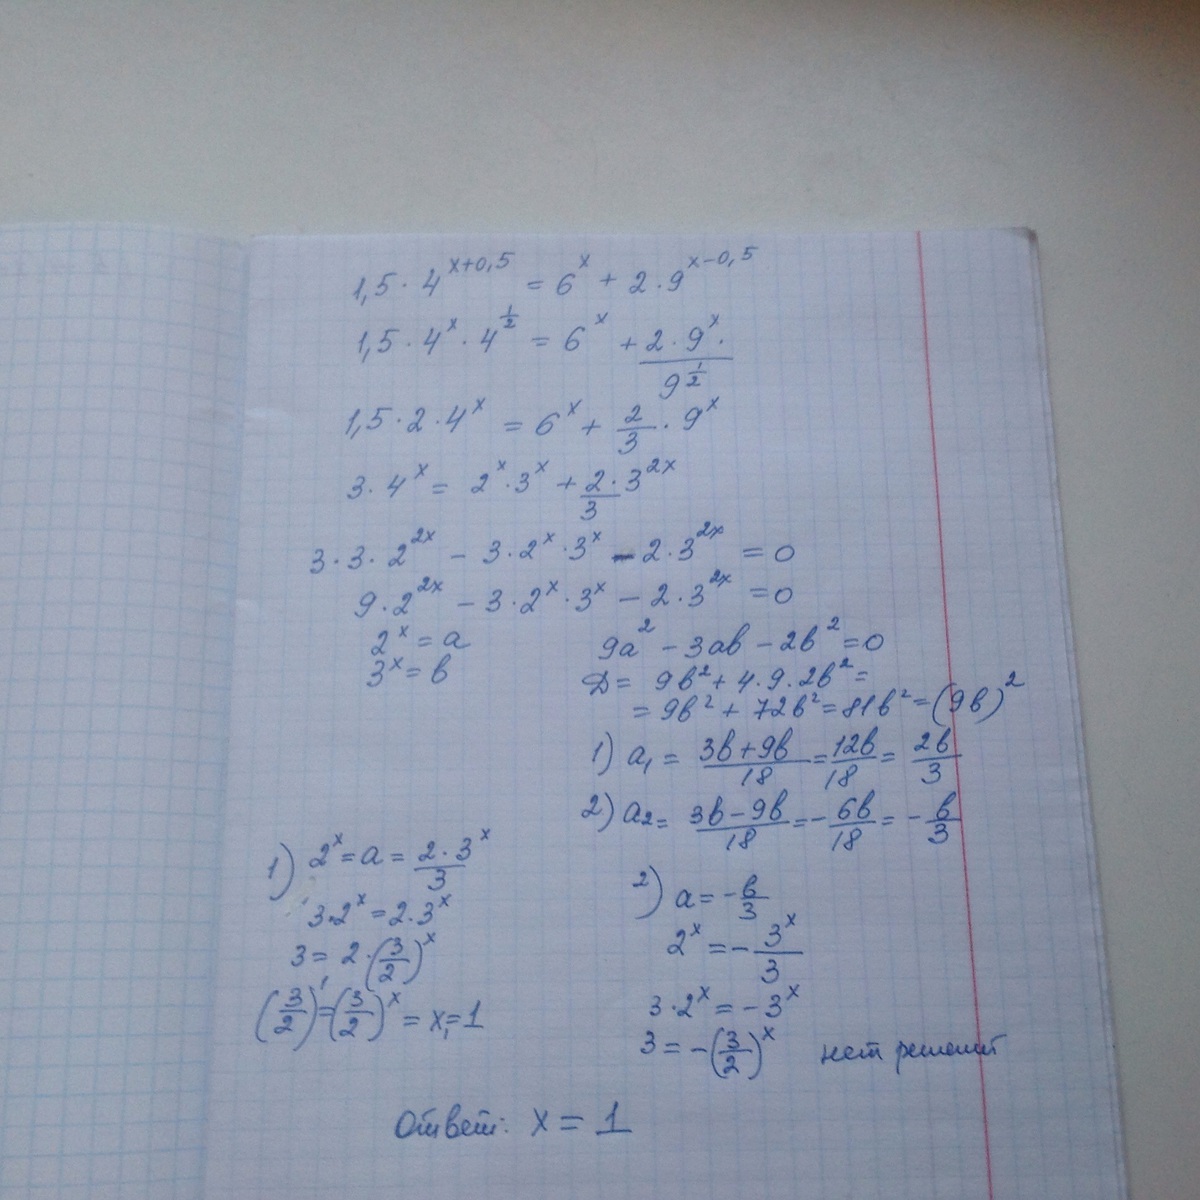 1,5 · 4^(x+0,5) = 6^x + 2 · 9^(x-0,5)
1,5 · 4^x · 4^(1/2) = 6^x + (2 · 9^x ·)/(9^(1/2))
1,5 · 2 · 4^x = 6^x + 2/3 · 9^x
3 · 4^x = 2^x · 3^x + 2/3 · 3^(2x)
3 · 3 · 2^(2x) - 3 · 2^x · 3^x - 2 · 3^(2x) = 0
9 · 2^(2x) - 3 · 2^x · 3^x - 2 · 3^(2x) = 0
2^x = a
3^x = в
9a^2 - 3aв - 2в^2 = 0
Д = 9в^2 + 4 · 9 · 2в^2 =
= 9в^2 + 72в^2 = 81в^2 = (9в)^2
1) a₁ = (3в+9в)/18 = 12в/18 = 2в/3
2) a₂ = (3в-9в)/18 = -6в/18 = -в/3
1) 2^x = a = (2 · 3^x)/3
3 · 2^x = 2 · 3^x
3 = 2 · (3/2)^x
(3/2)^1 = (3/2)^x = x₁ = 1
2) a = -в/3
2^x = -3^x/3
3 · 2^x = -3^x
3 = -(3/2)^x нет решений
Ответ: x = 1